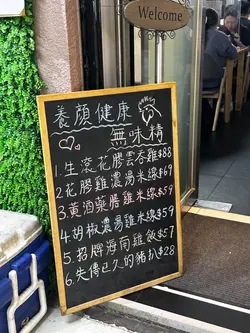 Welcome
養顏健康
無味精
1.生滾花膠雲吞雞$88
2.花膠雞濃湯米線$69
3.黃酒藥膳雞米線$59
4.胡椒濃湯雞米線$59
5.招牌海南雞飯$57
6.失傳已久的豬扒$28